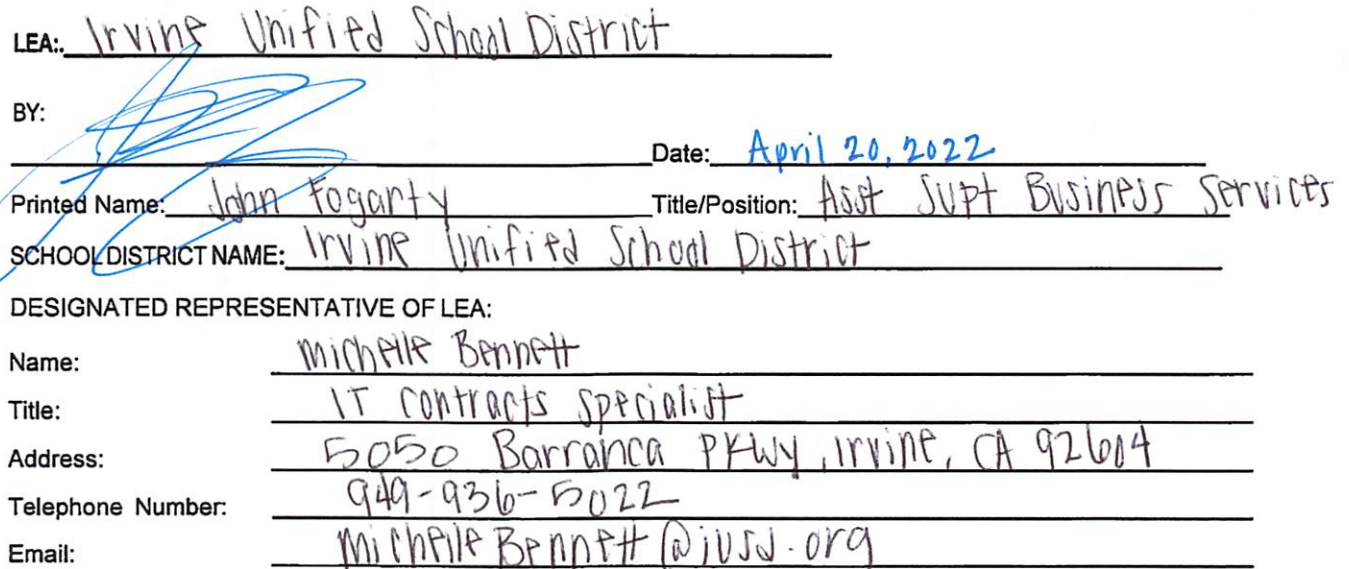 LEA:. Irvine Unified School District
BY:
Date: April 20, 2022
Printed Name: John Fogarty Title/Position: Asst Supt Business Services
SCHOOL DISTRICT NAME: Irvine Unified School District
DESIGNATED REPRESENTATIVE OF LEA:
Name: Michelle Bennett
Title: IT Contracts Specialist
Address: 5050 Barranca Pkwy, Irvine, CA 92604
Telephone Number: 949-936-5022
Email: MichelleBennett@iusd.org